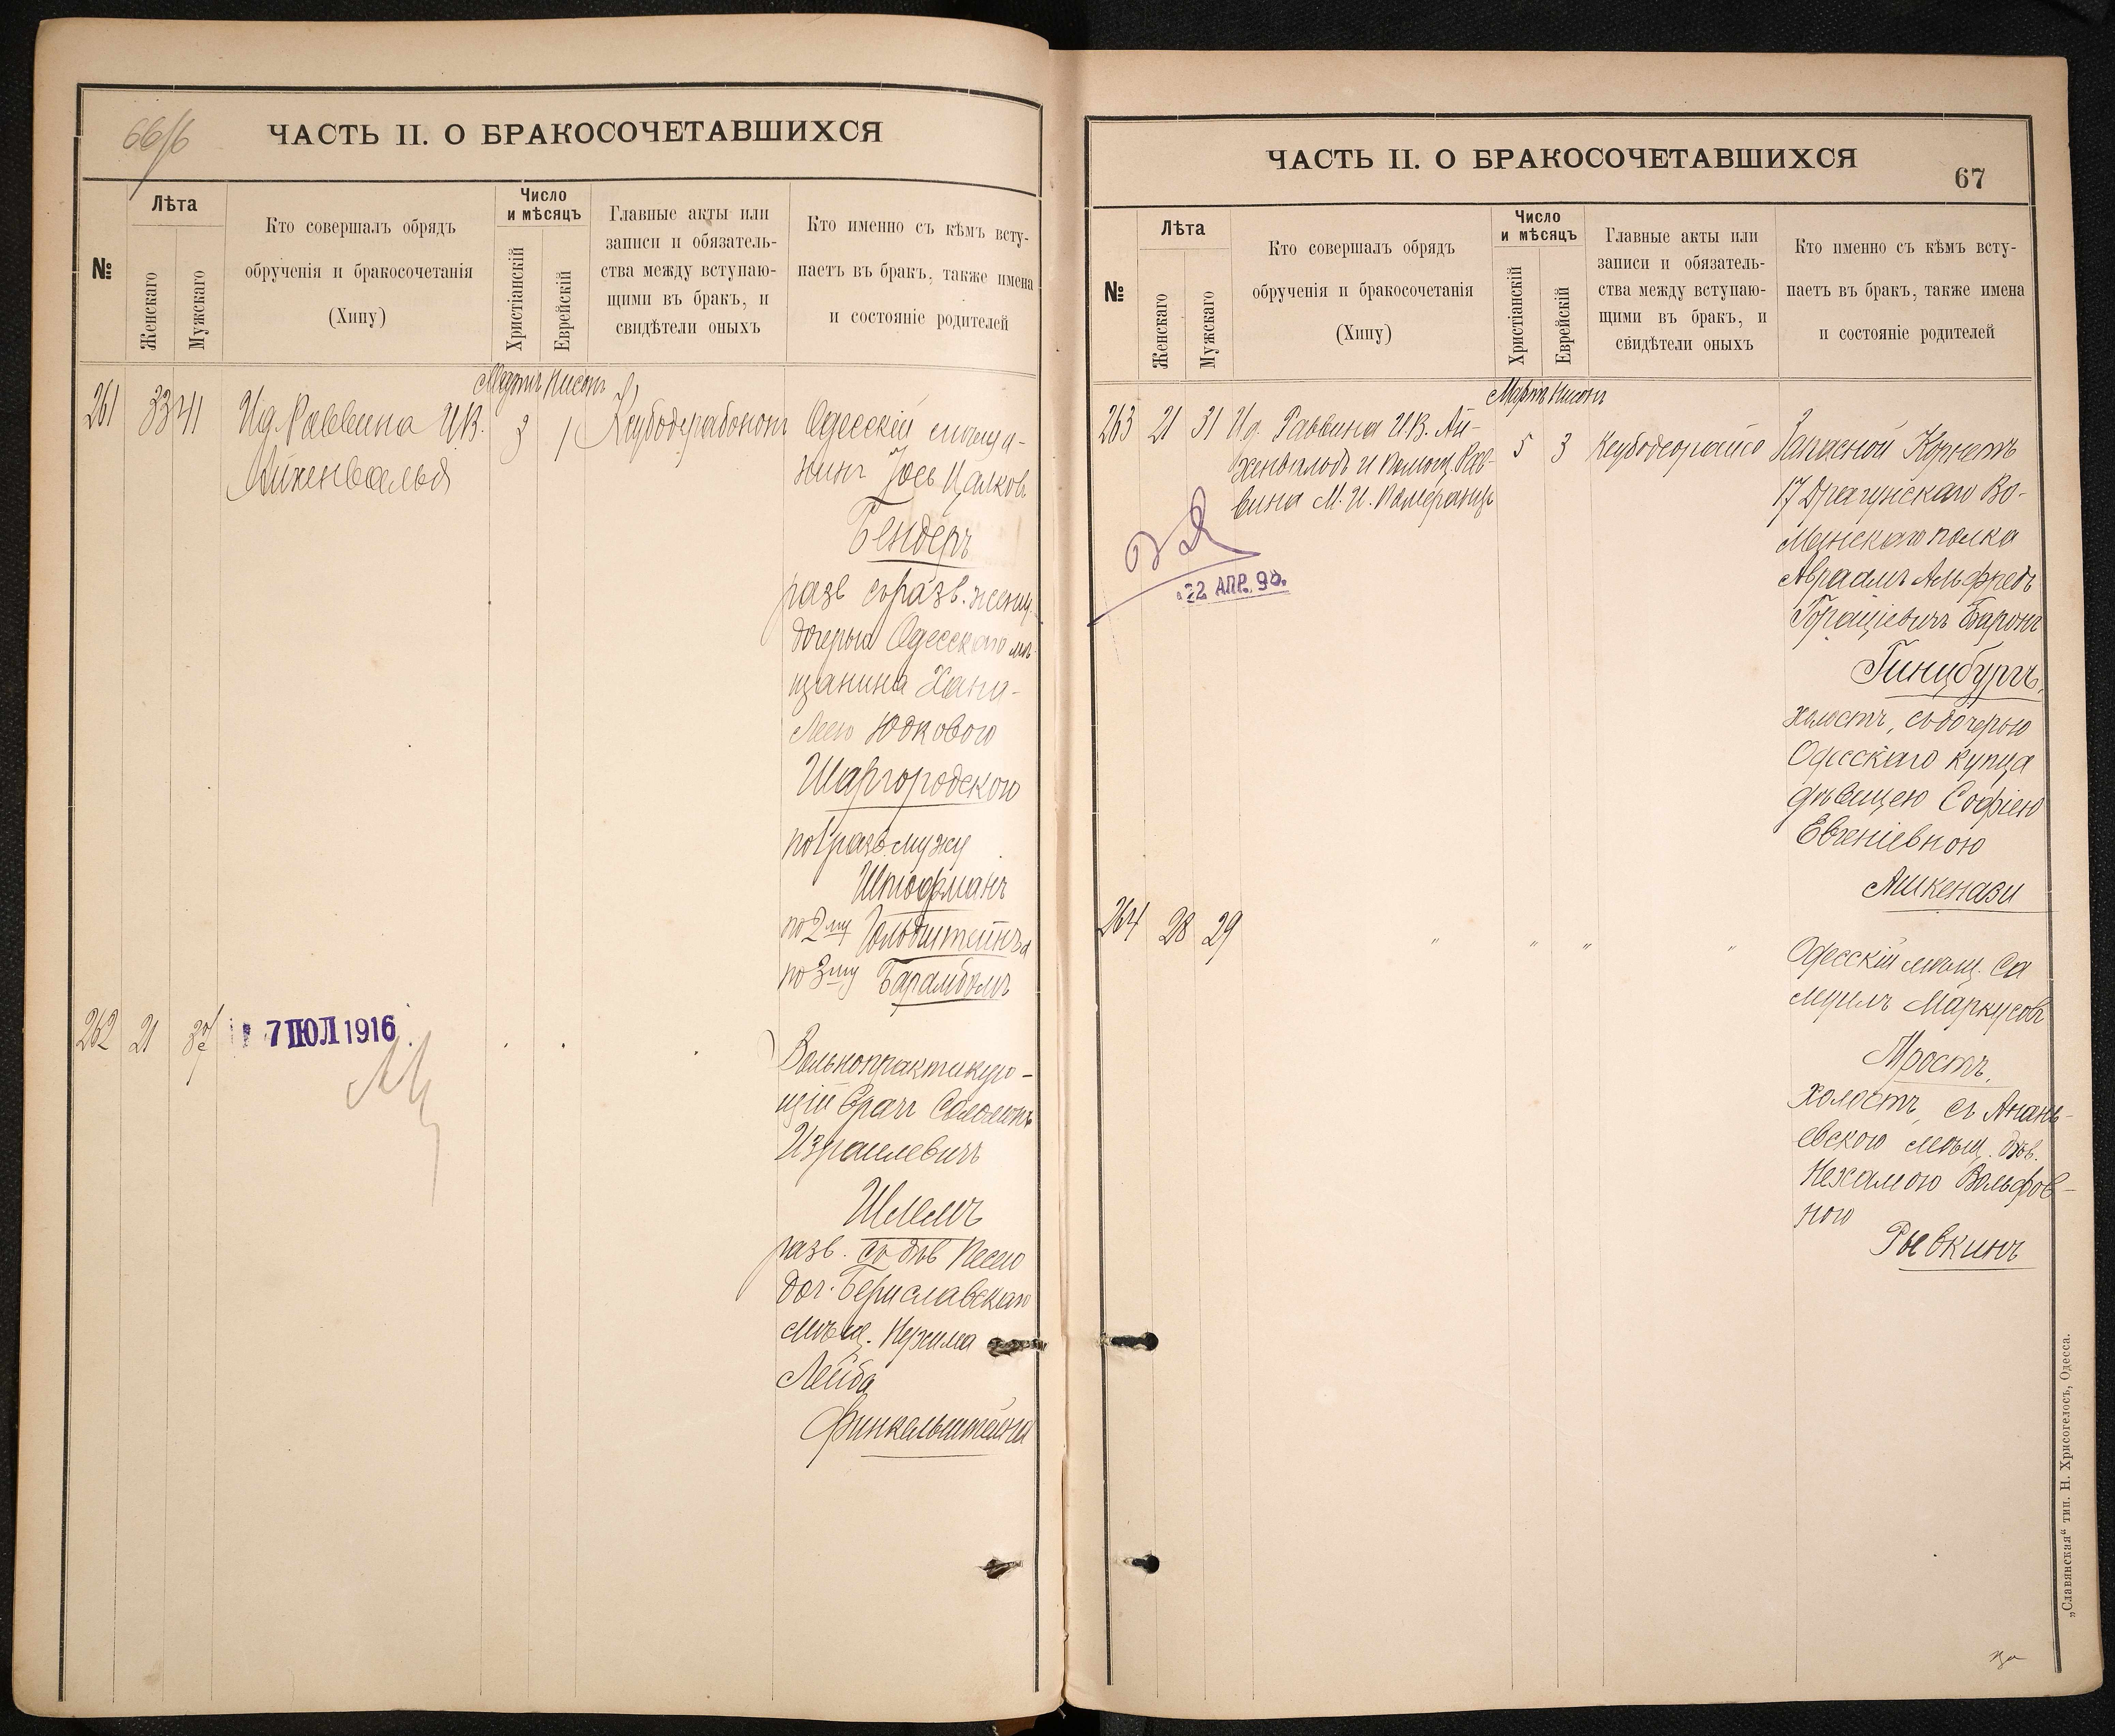 66/6
ЧАСТЬ II. О БРАКОСОЧЕТАВШИХСЯ
№
Лѣта
Женскаго
Мужскаго
Кто совершалъ обрядъ
обрученія и бракосочетанія
(Хипу)
Число
и мѣсяцъ
Христіанскій
Еврейскій
Главные акты или
записи и обязатель-
ства между вступаю-
щими въ бракъ, и
свидѣтели оныхъ
Кто именно съ кѣмъ всту-
паетъ въ бракъ, также имена
и состояніе родителей
Мартъ Нисонъ
261 33 41 Ид. Раввина И.В. 3 1
Айхенвальд
Одесскій мѣща-
нинъ Іось Цалковъ
Бендеръ
разв съ разв. женщ.
дочерью Одесскаго мѣ-
щанина Хана-
Леею Юдковою
Шаргородскою
по 1 разв. мужу
Штофманъ
по 2му Гольдштейнъ
по 3му Барамбомъ
262 21 37
7 ІЮЛ 1916
Вольнопрактикую-
щій врачъ Соломонъ
Израилевичъ
Шлемъ
разв. съ дѣв Песею
доч. Бериславскаго
мѣщ.
Лейба
Финкельштейна
ЧАСТЬ II. О БРАКОСОЧЕТАВШИХСЯ
67
№
Лѣта
Женскаго
Мужскаго
Кто совершалъ обрядъ
обрученія и бракосочетанія
(Хипу)
Число
и мѣсяцъ
Христіанскій
Еврейскій
Главные акты или
записи и обязатель-
ства между вступаю-
щими въ бракъ, и
свидѣтели оныхъ
Кто именно съ кѣмъ всту-
паетъ въ бракъ, также имена
и состояніе родителей
Мартъ Нисонъ
263 21 31 Ид. Раввина И.В. Ай- 5 3
хенвальдъ и помощ. Рав-
вина М. И. Померанцъ
22 АПР. 90.
Запасной Корнетъ
17 Драгунскаго Во-
лынскаго полка
Авраамъ Альфредъ
Горацiевичъ Баронъ
Гинцбургъ,
холостъ, съ дочерью
Одесскаго купца
дѣвицею Софіею
Евгеніевною
Ашкенази
264 28 29 " " " "
Одесскій мѣщ. Са
муилъ Маркусовъ
Мростъ,
холостъ, съ Анань-
евскою мѣщ. дѣв.
Нехамою Вольфов-
ною
Рывкинъ
„Славянская“ тип. Н. Хрисогелосъ, Одесса.